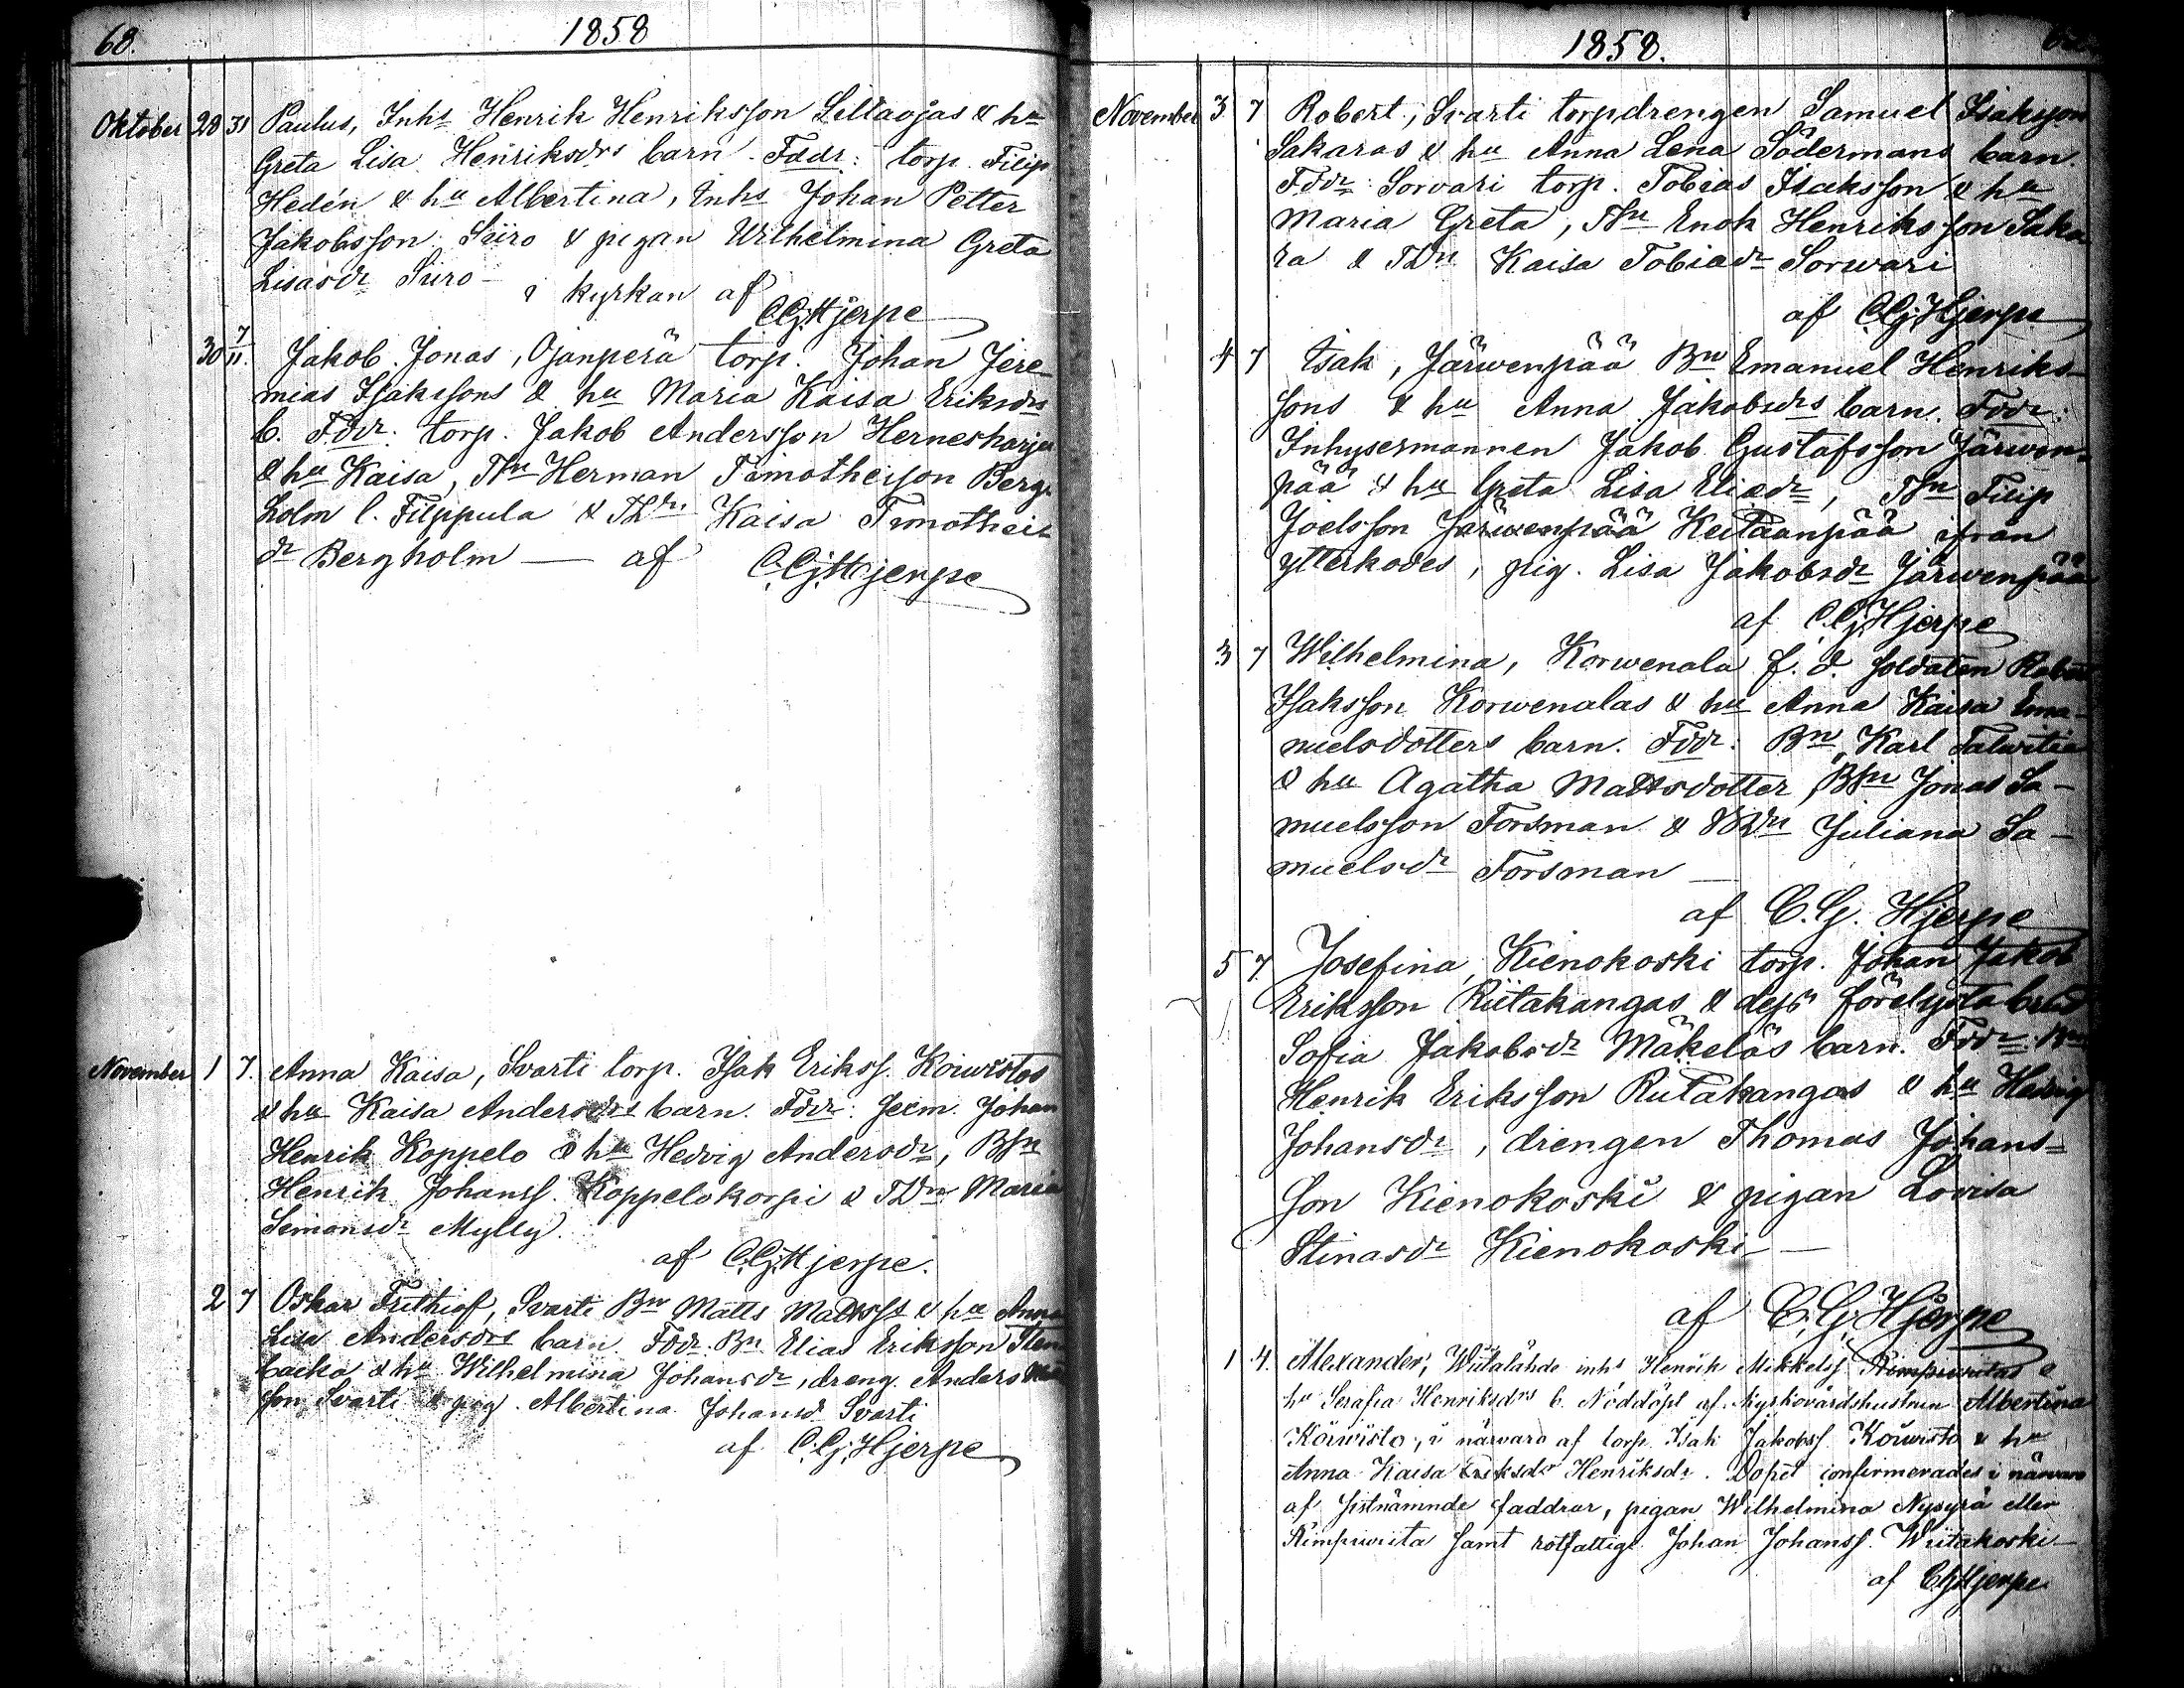 68.
1858
Oktober 28 31 Paulus, Inhs Henrik Henriksson Siltaojas & hu
Greta Lisa Henriksdrs barn. Faddr: torp. Filip
Hedén & hu Albertina, Inhs Johan Petter
Jakobsson Siiro & pigan Wilhelmina Greta
Lisasdr Siiro – i kyrkan af
C.G.Hjerpe
30 7/11. Jakob Jonas, Ojanperä torp. Johan Jere
mias Isakssons & hu Maria Kaisa Eriksdrs
b. Fddr. torp. Jakob Andersson Hernesharju
& hu Kaisa, TSn Herman Timotheison Berg-
holm l. Filppula & TDn Kaisa Timotheis
dr Bergholm — af C.G.Hjerpe
November 1 7. Anna Kaisa, Svarti torp. Isak Erikss. Koiwistos
& hu Kaisa Andersdrs barn. Fddr: Johan
Henrik Koppelo & hu Hedvig Andersdr, BSn
Henrik Johanss. Koppelokorpi & TDn Maria
Simonsdr Mylly.
af C.G.Hjerpe.
2 7 Oskar Frithiof, Svarti Bn Matts Mattsss & hu Anna
Lisa Andersdrs barn. Fddr. Bn Elias Eriksson Sten
backa & hu Wilhelmina Johansdr, dreng Anders
son Svarti & pig. Albertina Johansd Svarti
af C.G.Hjerpe
1858.
November 3 7 Robert, Svarti torpdrengen Samuel Isaksson
Sakaras & hu Anna Lena Södermans barn.
Fddr: Sorvari torp. Tobias Isaksson & hu
Maria Greta, TSn Enok Henriksson Saka
ra & TDn Kaisa Tobiadr Sorwari
af C.G.Hjerpe
4 7 Isak, Järwenpää Bn Emanuel Henriks-
sons & hu Anna Jakobsdrs barn. Fddr:
Inhysermannen Jakob Gustafsson Järwen-
pää & hu Greta Lisa Eliædr, TSn Filip
Joelsson Järwenpää Keitaanpää ifrån
ytterkades, pig. Lisa Jakobsdr Järwenpää
af C.G.Hjerpe
3 7 Wilhelmina, Korwenala f. d. soldaten Robert
Isaksson Korwenalas & hu Anna Kaisa Ema-
nuelsdotters barn. Fddr: Bn Karl Talwitie
& hu Agatha Mattsdotter, BSn Jonas Sa-
muelsson Forsman & BDn Juliana Sa-
muelsdr Forsman —
af C.G. Hjerpe
5 7. Josefina, Kienokoski torp. Johan Jakob
Eriksson Riitakangas & dess förelysta brud
Sofia Jakobsdr Mäkeläs barn. Fddr: Bn
Henrik Eriksson Riitakangas & hu Hedvig
Johansdr, drengen Thomas Johans-
son Kienokoski & pigan Lovisa
Stinasdr Kienokoski —
af C.G.Hjerpe
1 4. Alexander, Wiitalähde inhs Henrik Mikkelss. Rimpiwiitas &
hu Serafia Henriksdrs b. Nöddöpt af Kyrkovärdshustrun Albertina
Koiwisto, i närvaro af torp. Isak Jakobss. Koiwisto & hu
Anna Kaisa Eriksdr Henriksdr. Dopet confirmerades i närvaro
af sistnämnde faddrar, pigan Wilhelmina Nysyrä eller
Rimpiwiita samt rotfattige Johan Johanss. Wiitakoski
af C.G.Hjerpe